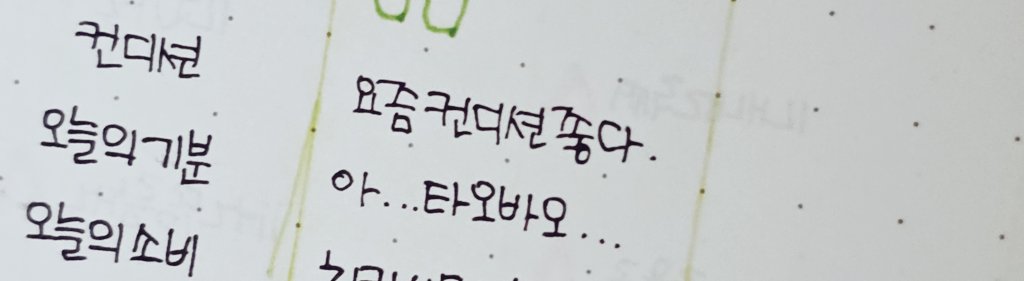 컨디션
오늘의 기분
오늘의 소비
요즘 컨디션 좋다.
아...타오바오...